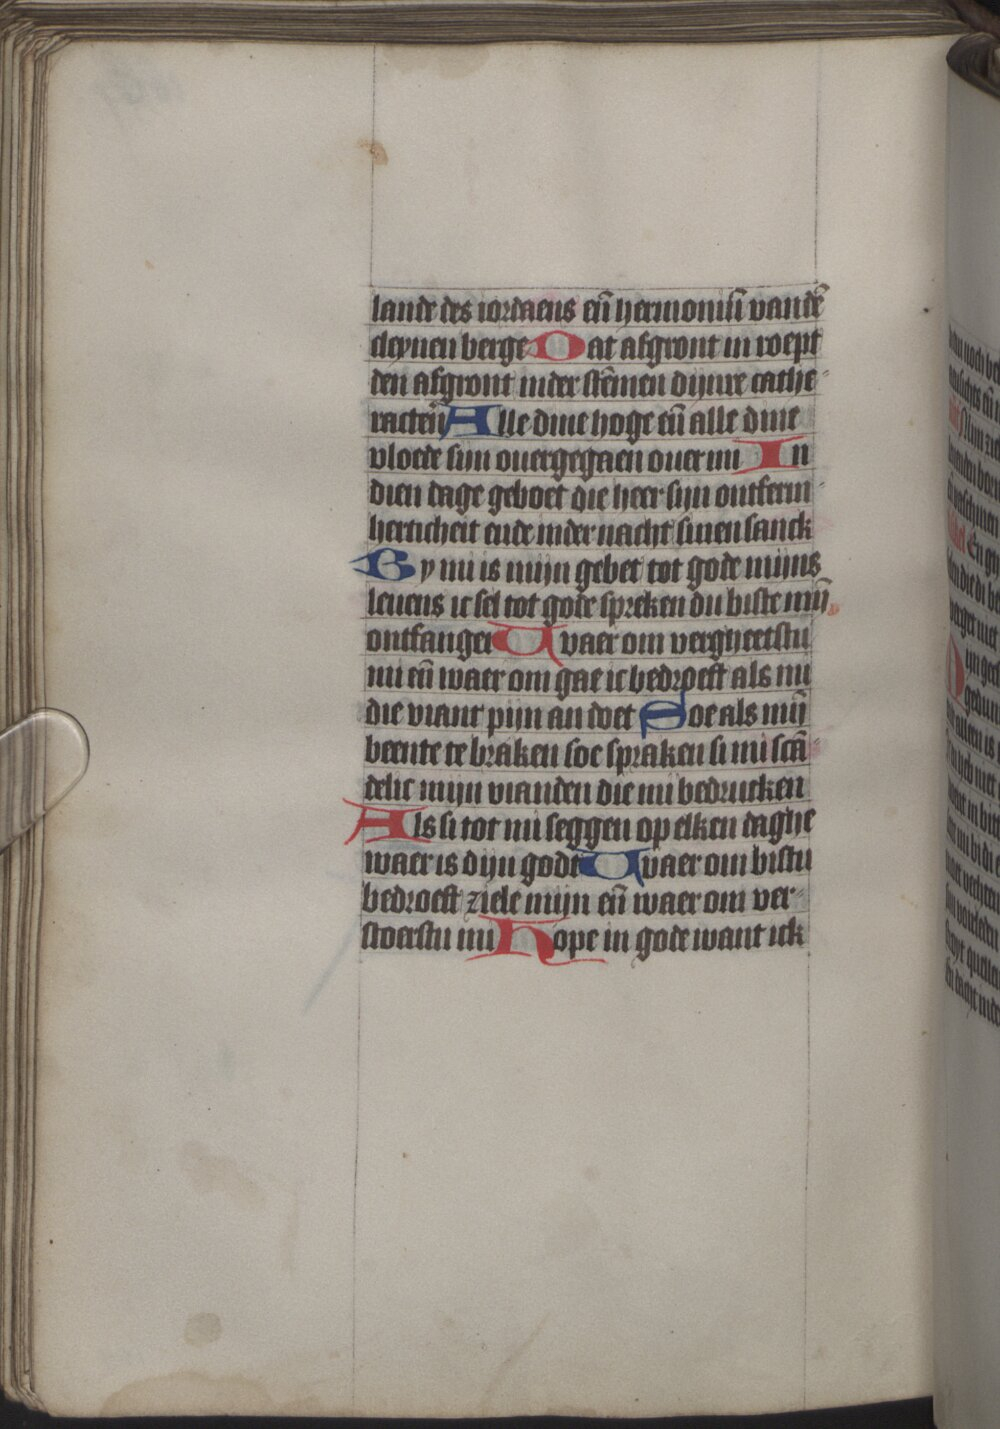 lande des iordaens en̄ hermoniū van dē
cleynen berge Dat afgront in roept
den afgront inder stēmen dijnre cathe-
racten̄ Alle dine hoge en̄ alle dine
vloede sijn ouergegaen ouer mi In
dien dage geboet die heer sijn ontferm-
herticheit ende inder nacht sinen sanck
By mi is mijn gebet tot gode mijns
leuens ic sel tot gode spreken du biste mij̄
ontfanger Waer om vergheetstu
mi en̄ waer om gae ic bedroeft als mi
die viant pijn an doet Soe als mij̄
beente te braken soe spraken si mi scā-
delic mijn vianden die mi bedrucken
Als si tot mi seggen op elken daghe
waer is dijn godt Waer om bistu
bedroeft ziele mijn en̄ waer om ver-
stoerstu mi Hope in gode want ick